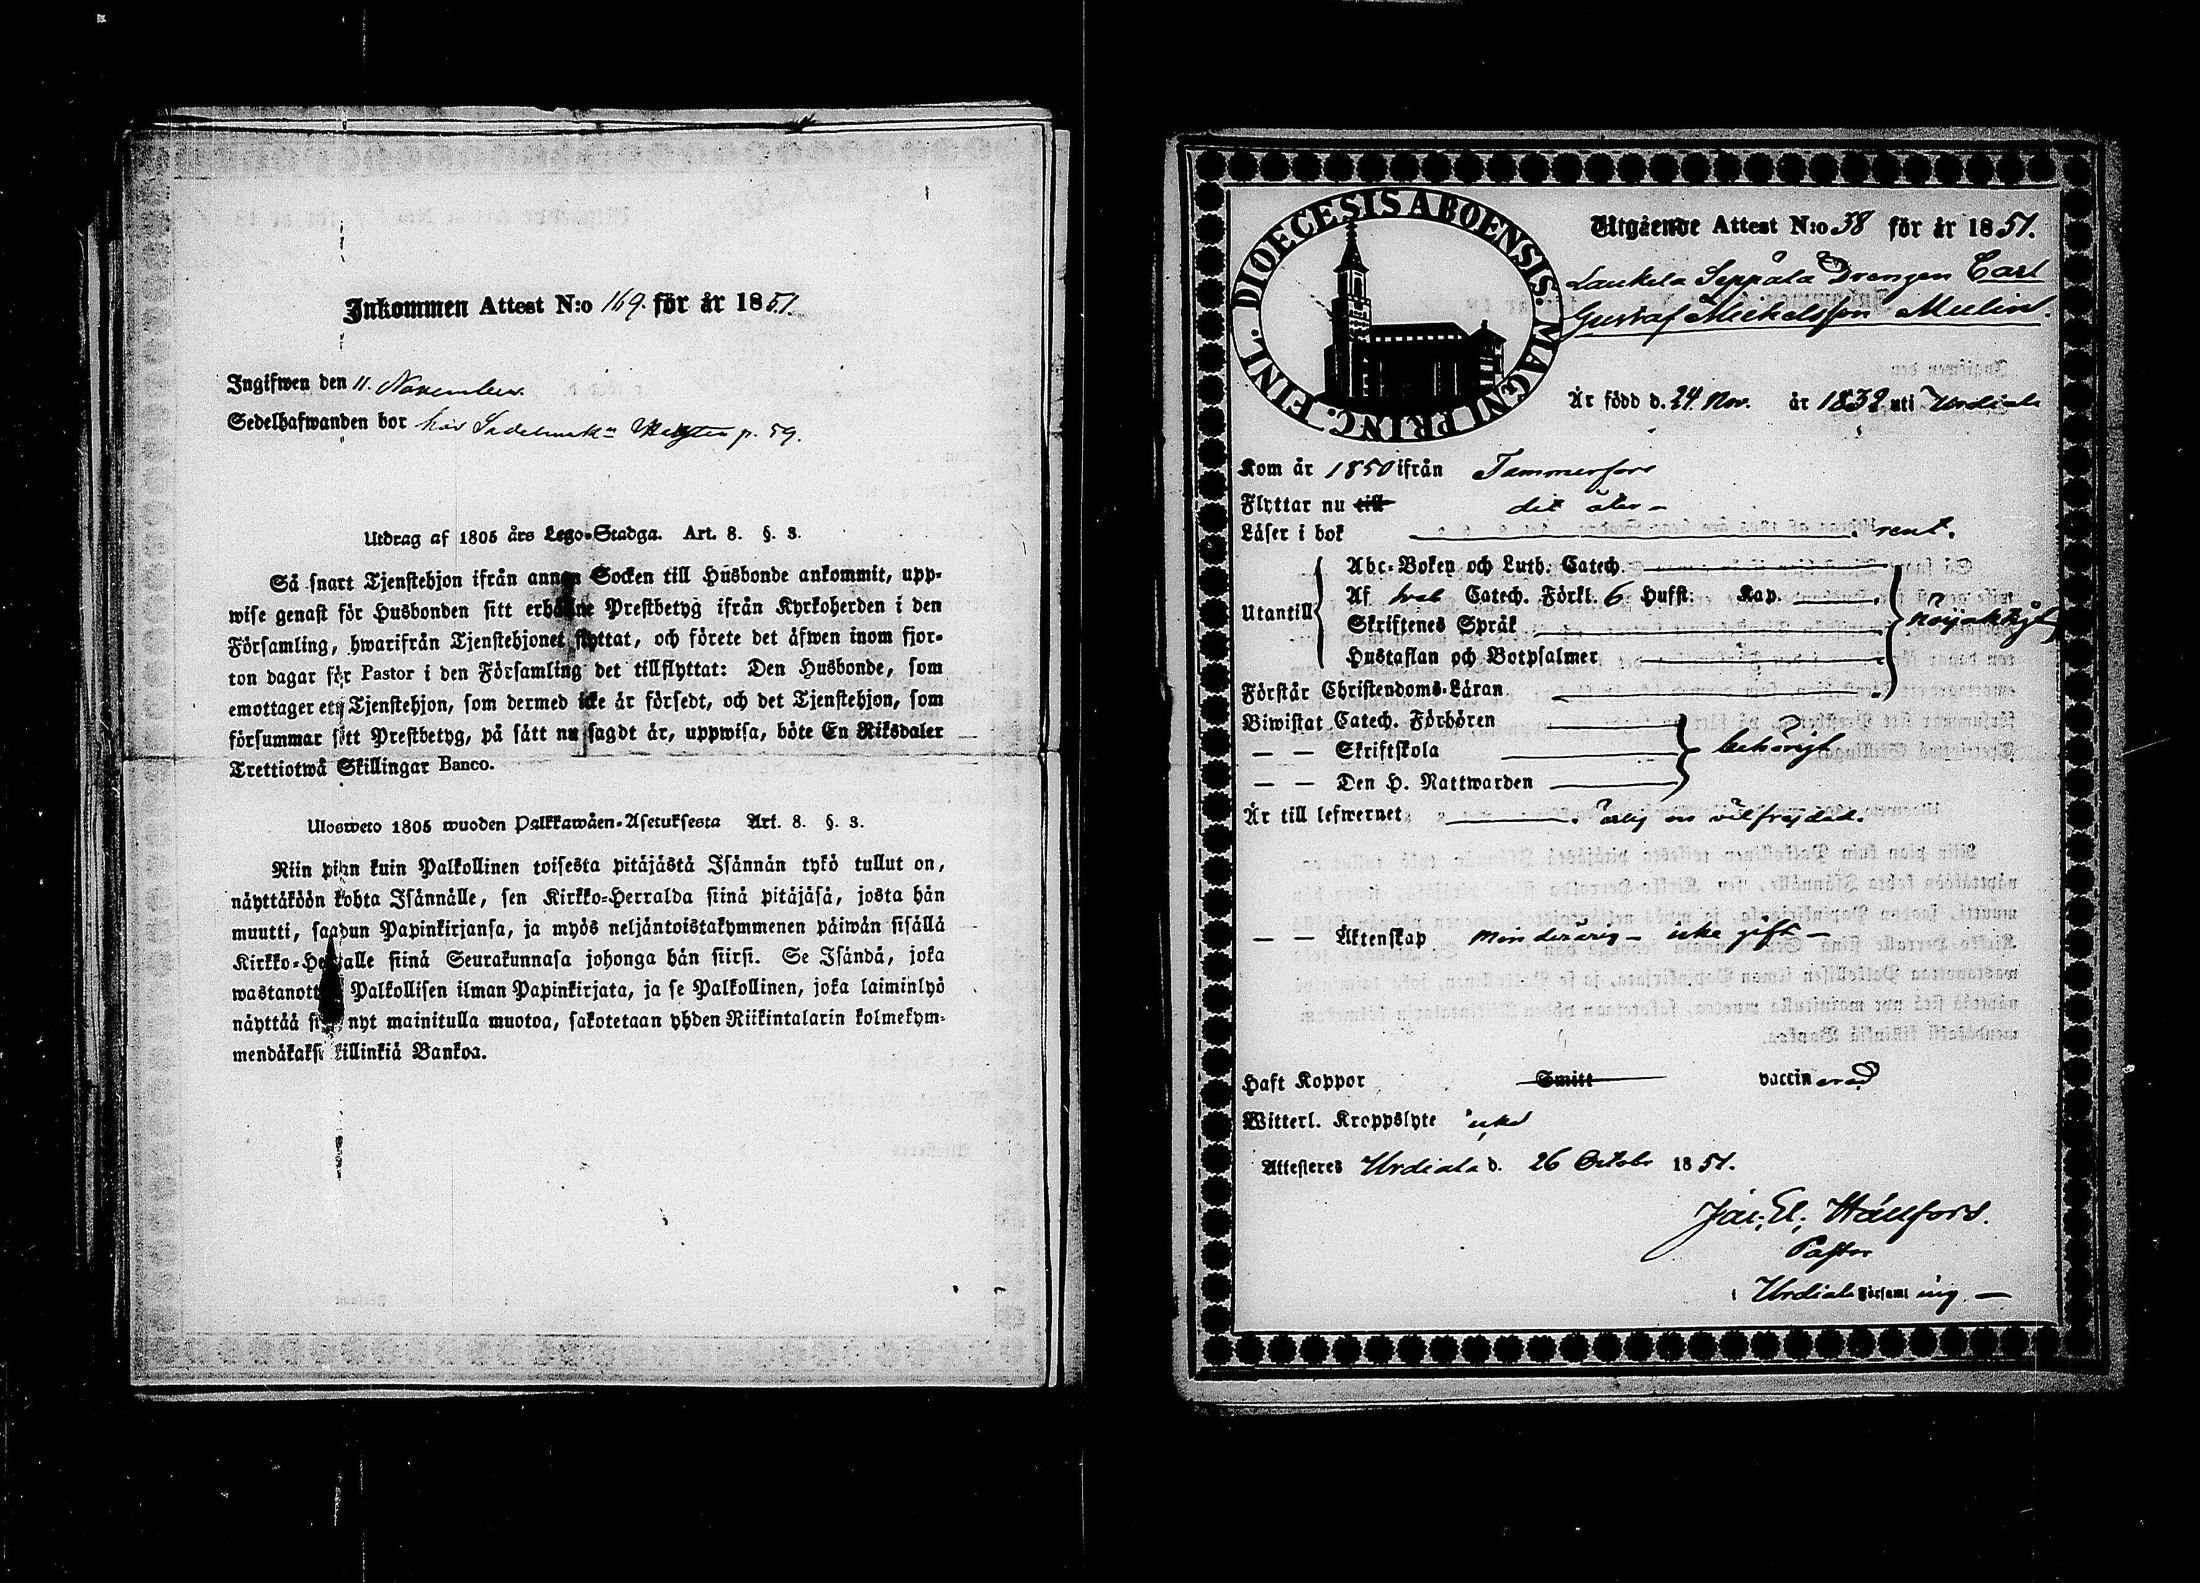 Inkommen Attest N:o 169. för år 1851.
Ingifwen den 11. November.
Sedelhafwanden bor hos Sadelmak:n p. 59.
Utdrag af 1805 års Lego-Stadga. Art. 8. §. 3.
Så snart Tjenstehjon ifrån annan Socken till Husbonde ankommit, upp-
wise genast för Husbonden sitt erhållne Prestbetyg ifrån Kyrkoherden i den
Församling, hwarifrån Tjenstehjonet flyttat, och förete det äfwen inom fjor-
ton dagar för Pastor i den Församling det tillflyttat: Den Husbonde, som
emottager ett Tjenstehjon, som dermed icke är försedt, och det Tjenstehjon, som
försummar sitt Prestbetyg, på sätt nu sagdt är, uppwisa, böte En Riksdaler
Trettiotwå Skillingar Banco.
Ulosweto 1805 wuoden Palkkawäen-Asetuksesta Art. 8. §. 3.
Niin pian kuin Palkollinen toisesta pitäjästä Isännän tykö tullut on,
näyttäköön kohta Isännälle, sen Kirkko-Herralda siinä pitäjäsä, josta hän
muutti, saadun Papinkirjansa, ja myös neljäntoistakymmenen päiwän sisällä
Kirkko-Herralle siinä Seurakunnasa johonga hän siirsi. Se Isändä, joka
wastanottaa Palkollisen ilman Papinkirjata, ja se Palkollinen, joka laiminlyö
näyttää sitä nyt mainitulla muotoa, sakotetaan yhden Riikintalarin kolmekym-
mendäkaksi killinkiä Bankoa.
FINL. DIOECESIS ABOENSIS. MAGNI PRINC.
Utgående Attest N:o 38 för år 1851.
Laukela Seppälä Drengen Carl
Gustaf Mickelsson Meelin.
Är född d. 24 Nov. år 1832 uti Urdiala
Kom år 1850 ifrån Tammerfors
Flyttar nu till dit åter –
Läser i bok rent.
Utantill
Abc-Boken och Luth. Catech.
Af Catech. Förkl. 6 Hufst: Kap.
Skriftenes Språk
Hustaflan och Botpsalmer
nöjaktigt
Förstår Christendoms-Läran
Biwistat Catech. Förhören
— — Skriftskola behörigt
— — Den H. Nattwarden
Är till lefwernet ärlig och välfrejdad.
— — Äktenskap minderårig – icke gift –
Haft Koppor Smitt vaccinerad
Witterl. Kroppslyte icke
Attesteres Urdiala d. 26 Octobr 1851.
Jac. El. Hällfors.
Pastor
i Urdiala Församling. —